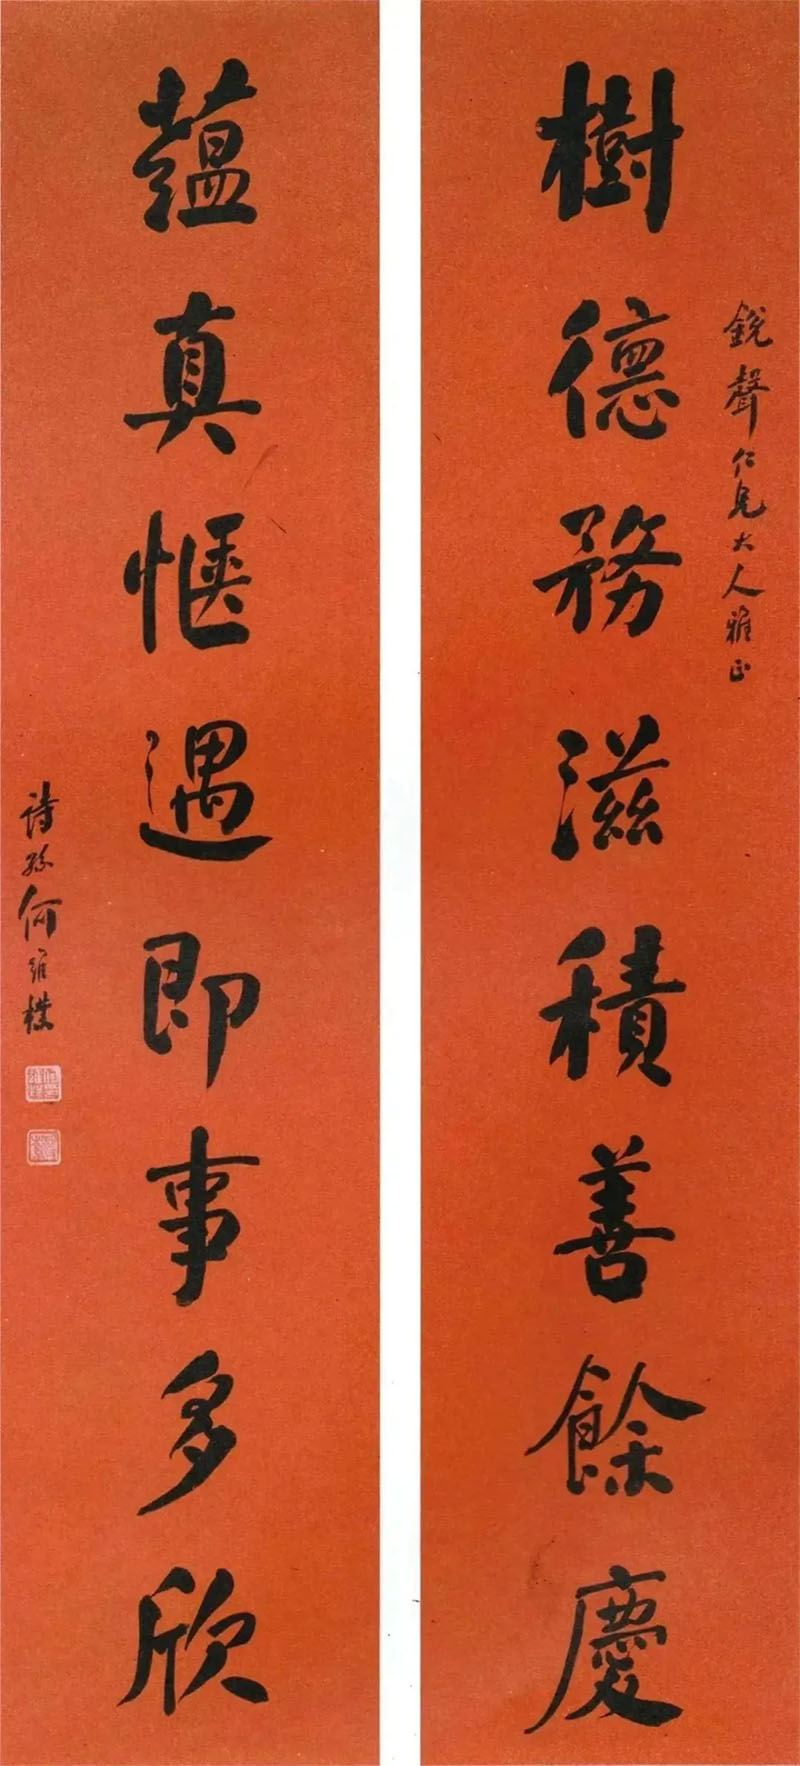 銳聲仁兄大人雅正
樹德務滋積善餘慶
蘊真愜遇即事多欣
詩孫何維樸